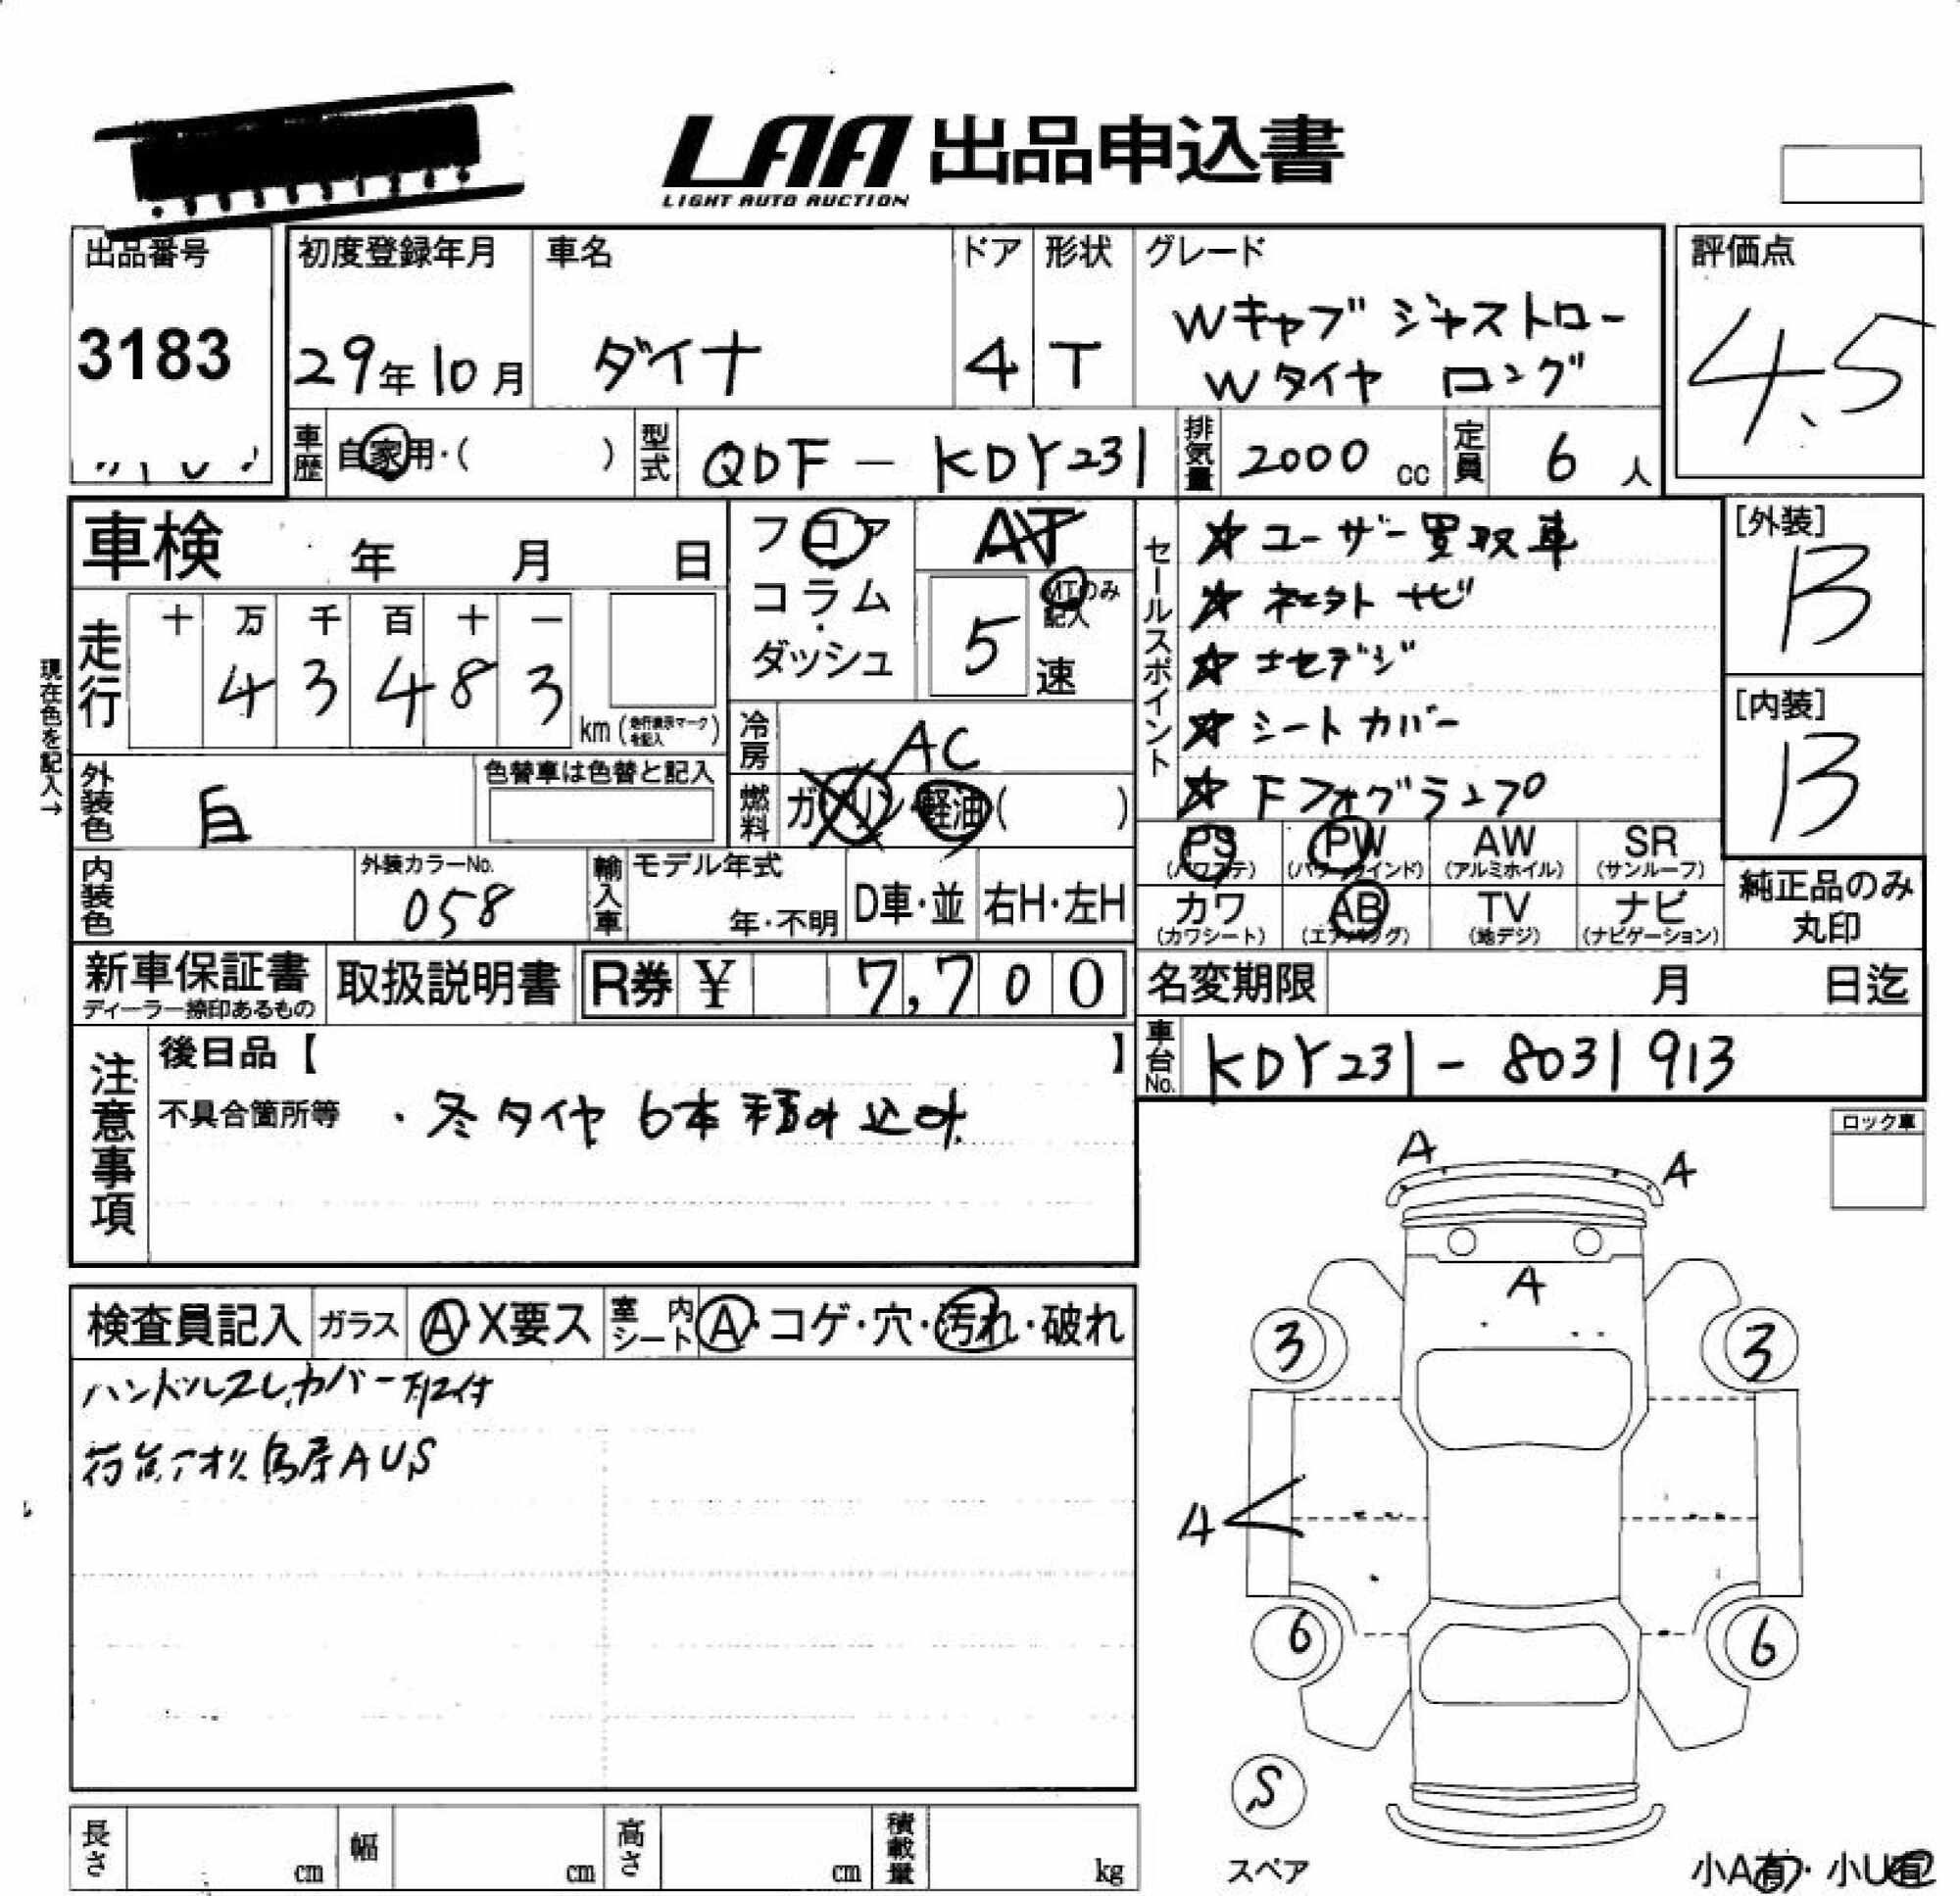 LAA 出品申込書
LIGHT AUTO AUCTION
出品番号
3183
初度登録年月
29年10月
車名
ダイナ
ドア
4
形状
T
グレード
Wキャブ ジャストロー
Wタイヤ ロング
評価点
4.5
車歴 自家用・( )
型式 QDF-KDY231
排気量 2000 cc
定員 6 人
車検 年 月 日
フロア
コラム
ダッシュ
AT
MTのみ記入
5 速
走行
十 万 千 百 十 一
4 3 4 8 3
km (走行表示マークを記入)
現在色を記入→
冷房 AC
外装色 白
色替車は色替と記入
燃料 ガソリン・軽油( )
内装色
外装カラーNo.
058
輸入車 モデル年式
年・不明
D車・並
右H・左H
新車保証書
ディーラー捺印あるもの
取扱説明書
R券 ¥ 7,700
セールスポイント
☆ ユーザー買取車
☆ ナビ
☆
☆ シートカバー
☆ Fフォグランプ
[外装]
B
[内装]
B
PS
(パワステ)
PW
(パワーウインド)
AW
(アルミホイル)
SR
(サンルーフ)
カワ
(カワシート)
AB
(エアバッグ)
TV
(地デジ)
ナビ
(ナビゲーション)
純正品のみ
丸印
名変期限 月 日迄
車台No. KDY231-8031913
注意事項
後日品【 】
不具合箇所等 ・冬タイヤ 6本 積み込み
ロック車
検査員記入
ガラス A・X要ス
室内シート A・コゲ・穴・汚れ・破れ
ハンドルスレ カバー取付
荷台アオリ鳥居AUS
A
A
A
3
3
4
6
6
S
スペア
小A有・小U有
長さ cm
幅 cm
高さ cm
積載量 kg